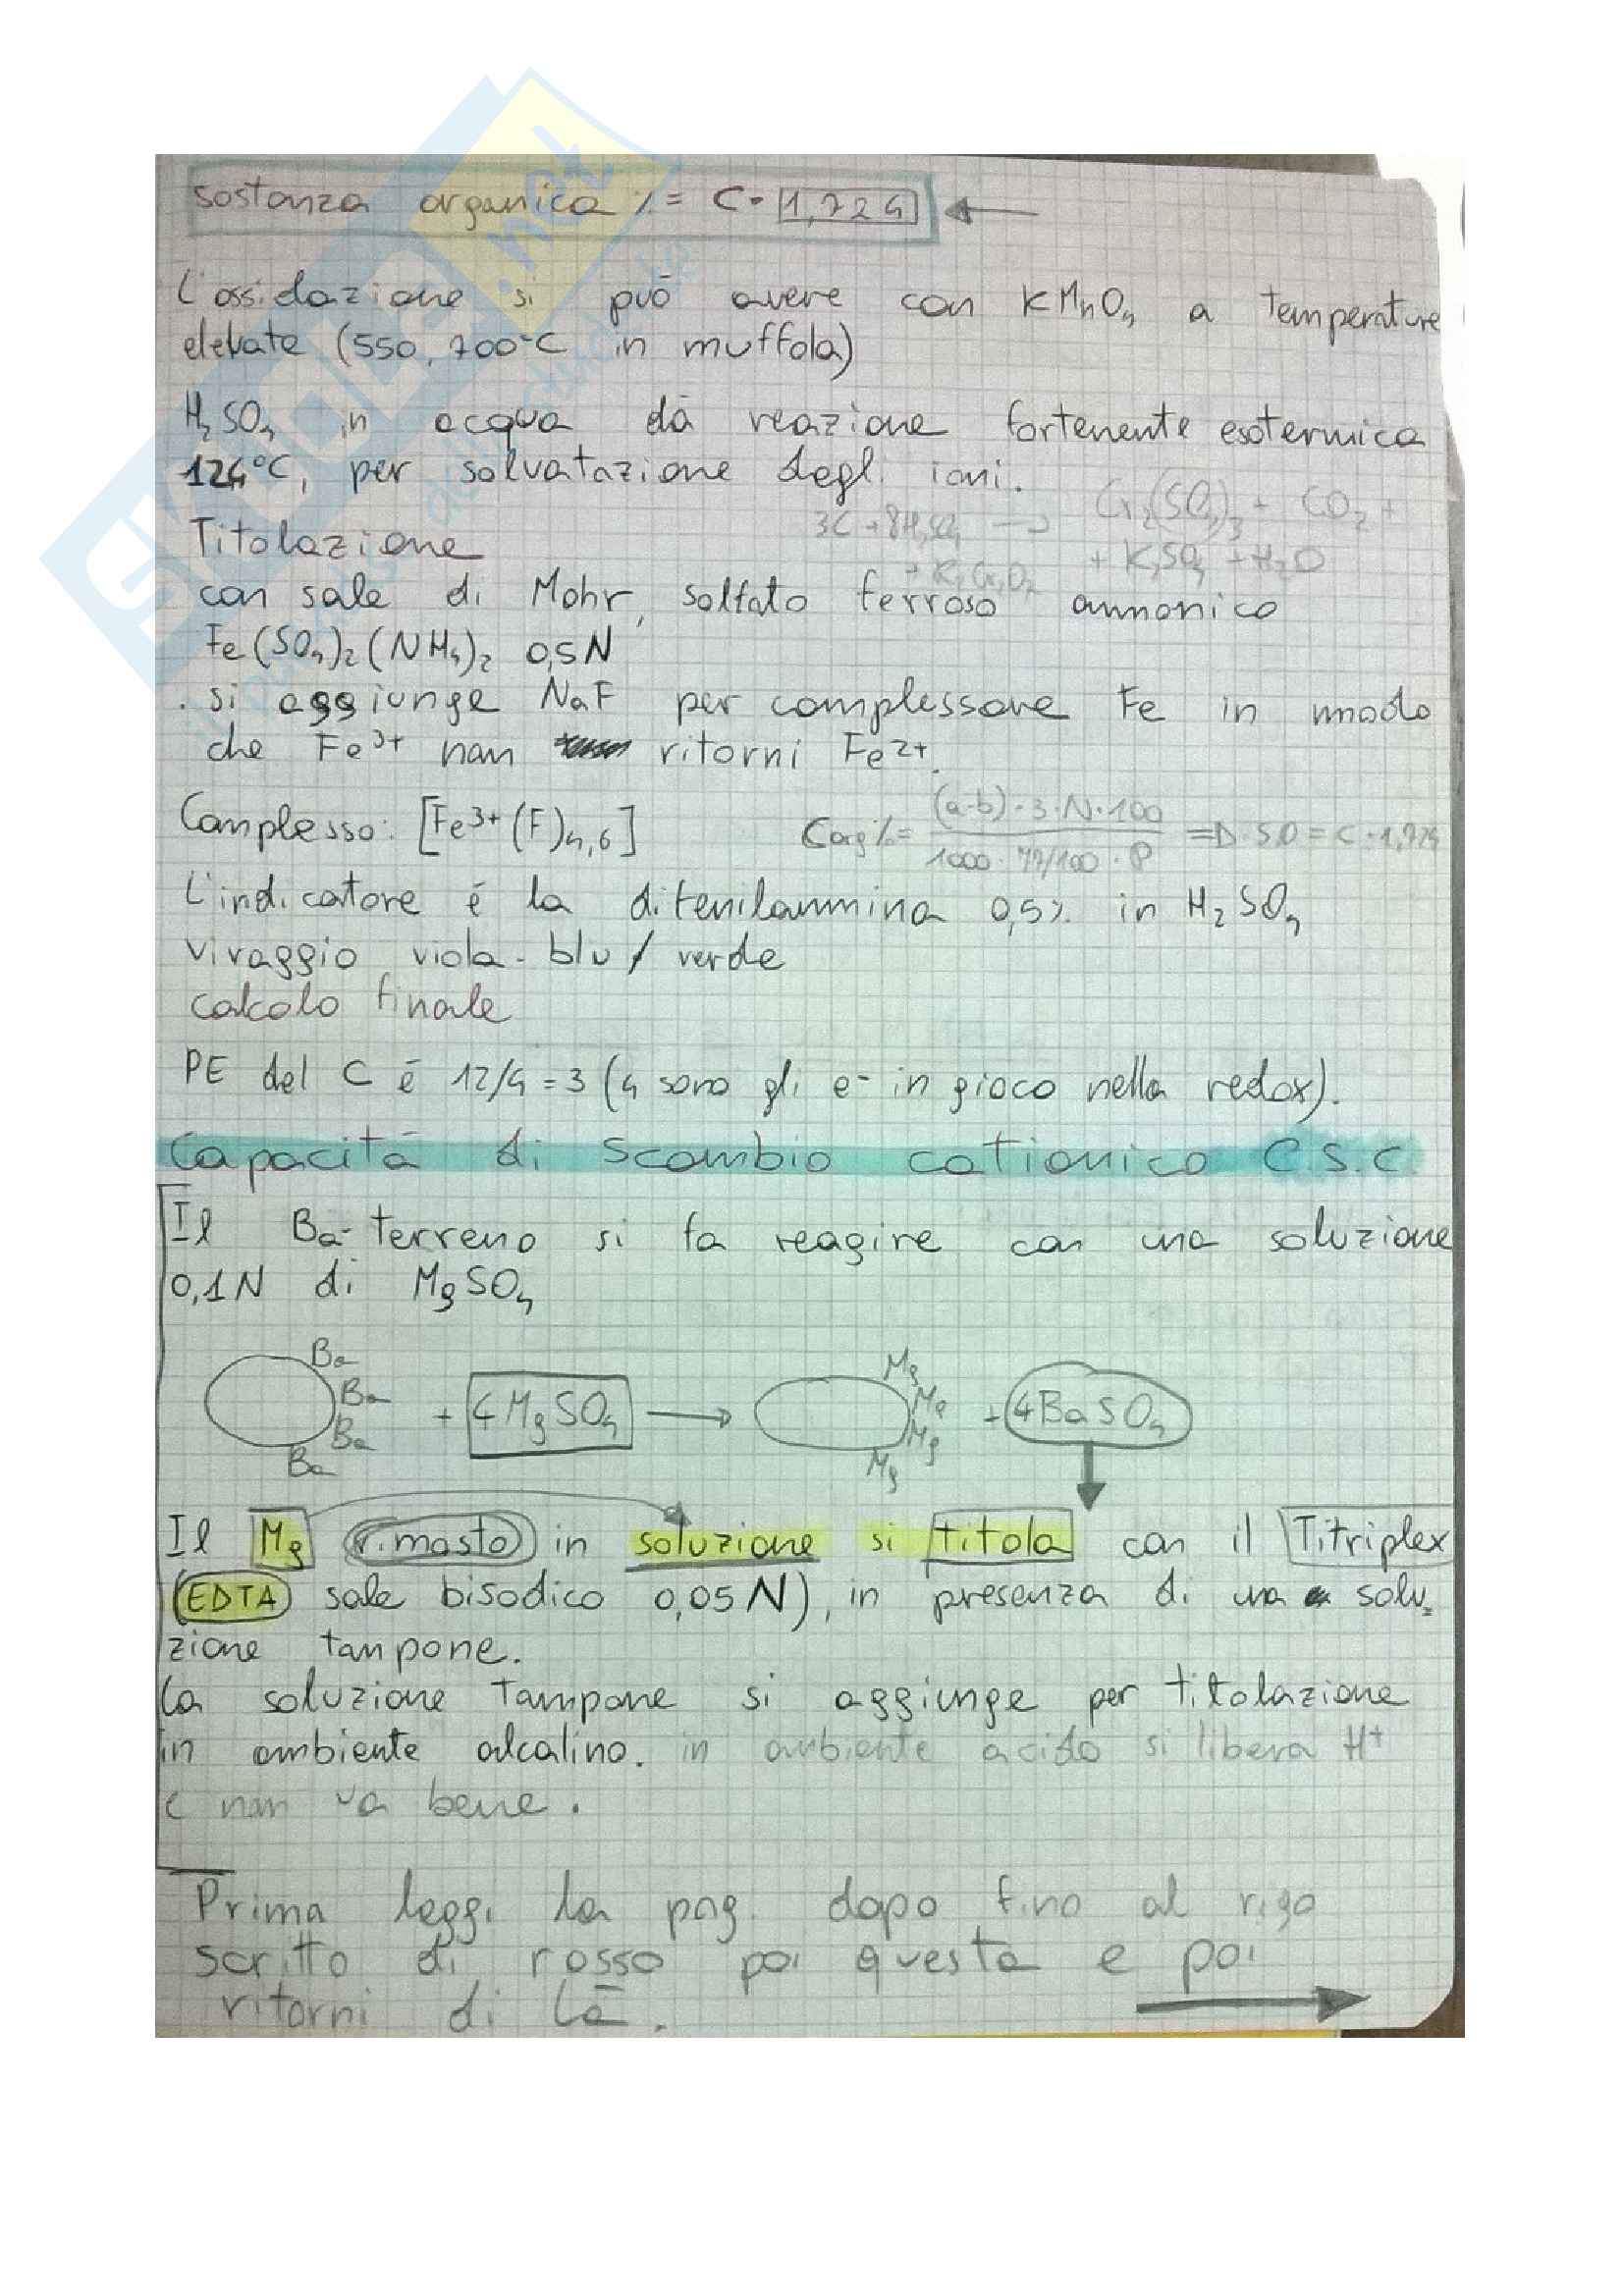 sostanza organica % = C · 1,724
L'ossidazione si può avere con KMnO₄ a temperature
elevate (550, 700°C in muffola)
H₂SO₄ in acqua dà reazione fortemente esotermica
124°C, per solvatazione degli ioni.
3C + 8H₂SO₄ → Cr₂(SO₄)₃ + CO₂ +
+ K₂Cr₂O₇ + K₂SO₄ + H₂O
Titolazione
con sale di Mohr, solfato ferroso ammonico
Fe(SO₄)₂(NH₄)₂ 0,5N
. si aggiunge NaF per complessare Fe in modo
che Fe³⁺ non ritorni Fe²⁺.
Complesso: [Fe³⁺(F)₄,₆]
Corg% = (a-b)·3·N·100 / 1000·77/100·P => S.O = C·1,724
L'indicatore é la difenilammina 0,5% in H₂SO₄
viraggio viola-blu / verde
calcolo finale
PE del C é 12/4 = 3 (4 sono gli e⁻ in gioco nella redox).
Capacità di Scambio cationico C.S.C
Il Ba-terreno si fa reagire con una soluzione
0,1N di MgSO₄
Ba Ba Ba Ba + 4MgSO₄ → Mg Mg Mg Mg + 4BaSO₄
Il Mg rimasto in soluzione si titola con il Titriplex
(EDTA sale bisodico 0,05N), in presenza di una solu=
zione tampone.
La soluzione tampone si aggiunge per titolazione
in ambiente alcalino. in ambiente acido si libera H⁺
e non va bene.
Prima leggi la pag. dopo fino al rigo
scritto di rosso poi questa e poi
ritorni di là.